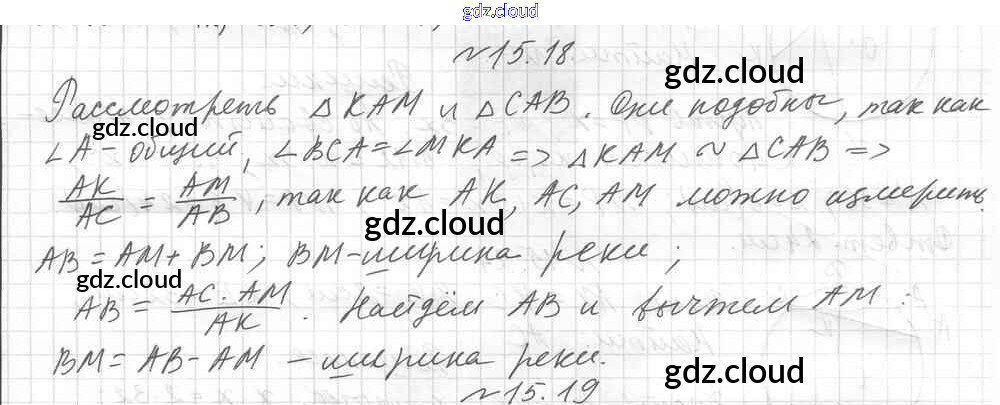 gdz.cloud
№15.18
gdz.cloud
Рассмотреть △KAM и △CAB. Они подобны, так как
gdz.cloud
∠A - общий, ∠BCA = ∠MKA => △KAM ~ △CAB =>
AK/AC = AM/AB, так как AK, AC, AM можно измерить.
gdz.cloud
gdz.cloud
AB = AM + BM; BM - ширина реки;
gdz.cloud
AB = AC · AM/AK. Найдём AB и вычтем AM:
BM = AB - AM - ширина реки.
gdz.cloud
№15.19